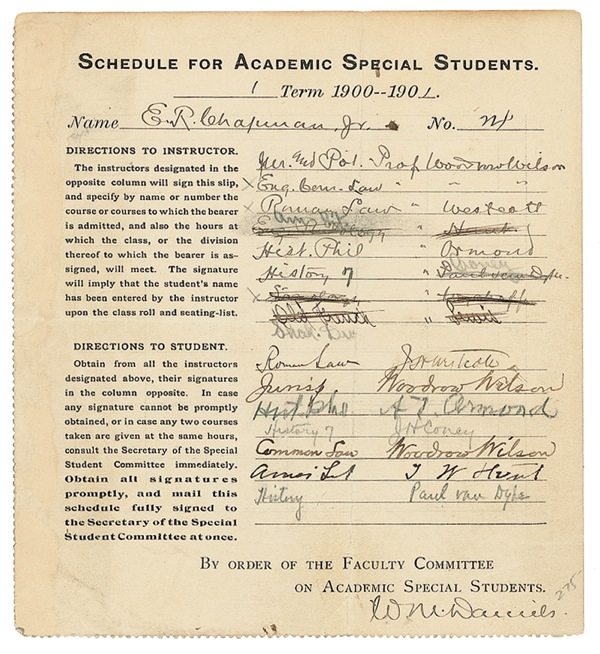 SCHEDULE FOR ACADEMIC SPECIAL STUDENTS.
1 Term 1900--1901.
Name E. R. Chapman, Jr. No. 24
DIRECTIONS TO INSTRUCTOR.
The instructors designated in the
opposite column will sign this slip,
and specify by name or number the
course or courses to which the bearer
is admitted, and also the hours at
which the class, or the division
thereof to which the bearer is as-
signed, will meet. The signature
will imply that the student's name
has been entered by the instructor
upon the class roll and seating-list.
DIRECTIONS TO STUDENT.
Obtain from all the instructors
designated above, their signatures
in the column opposite. In case
any signature cannot be promptly
obtained, or in case any two courses
taken are given at the same hours,
consult the Secretary of the Special
Student Committee immediately.
Obtain all signatures
promptly, and mail this
schedule fully signed to
the Secretary of the Special
Student Committee at once.
Jur. and Pol. Prof Woodrow Wilson
x Eng. Com. Law " " "
x Roman Law " Westcott
Am Lit.
" Hunt
Hist. Phil " Ormond
Coney
History 7 " Paul van Dyke
x
Old French "
Shak.
Roman Law J H Westcott
Juris Woodrow Wilson
Hist Phil A T Ormond
History 7 J H Coney
Common Law Woodrow Wilson
Amer Lit T W Hunt
History Paul van Dyke
BY ORDER OF THE FACULTY COMMITTEE
ON ACADEMIC SPECIAL STUDENTS.
W M Daniels.
275